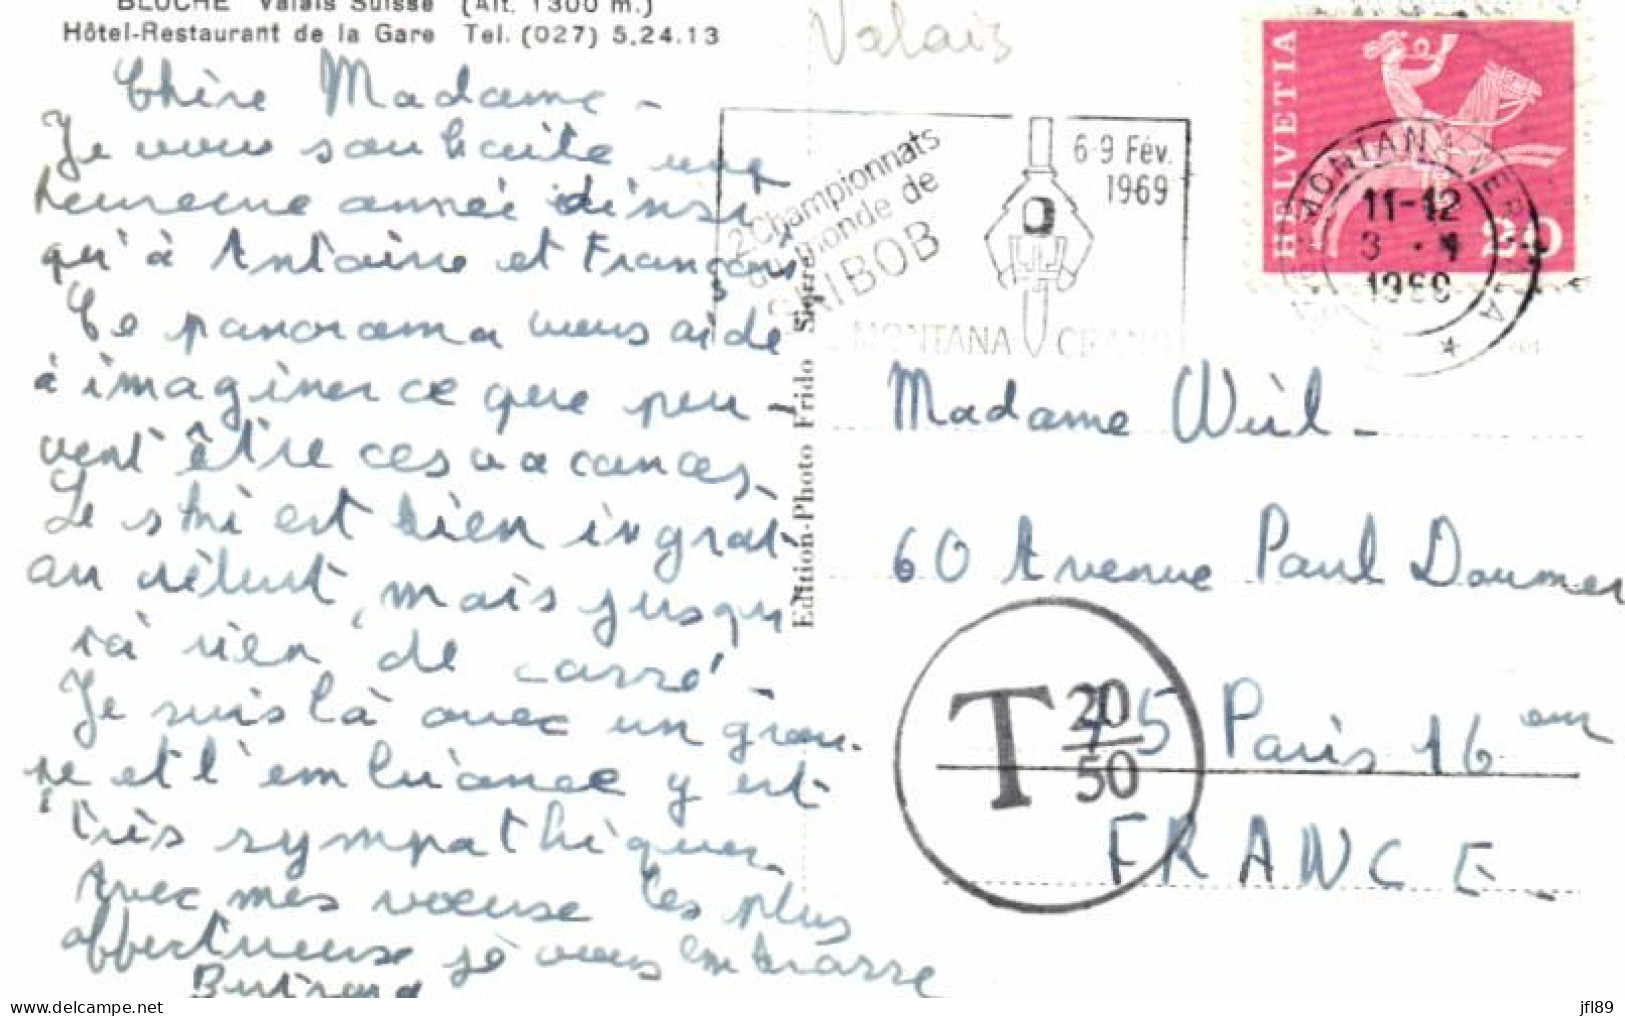 BLUCHE Valais Suisse (Alt. 1300 m.)
Hôtel-Restaurant de la Gare Tel. (027) 5.24.13
Valais
Chère Madame -
Je vous souhaite une
heureuse année ainsi
qu'à Antoine et François
Ce panorama vous aide
à imaginer ce que peu-
vent être ces vacances.
Le ski est bien ingrat
au début, mais jusqu'
ià rien de cassé -
Je suis là avec un grou-
pe et l'ambiance y est
très sympathique.
Avec mes voeux les plus
affectueux je vous embrasse
Bertrand
Edition-Photo Frido Sierre
2 Championnats
du Monde de
SKIBOB
6-9 Fév.
1969
MONTANA CRANS
HELVETIA
20
MONTANA-VERMALA
11-12
3
1969
Madame Weil -
60 Avenue Paul Doumer
75 Paris 16 em
FRANCE -
T 20/50
jfl89